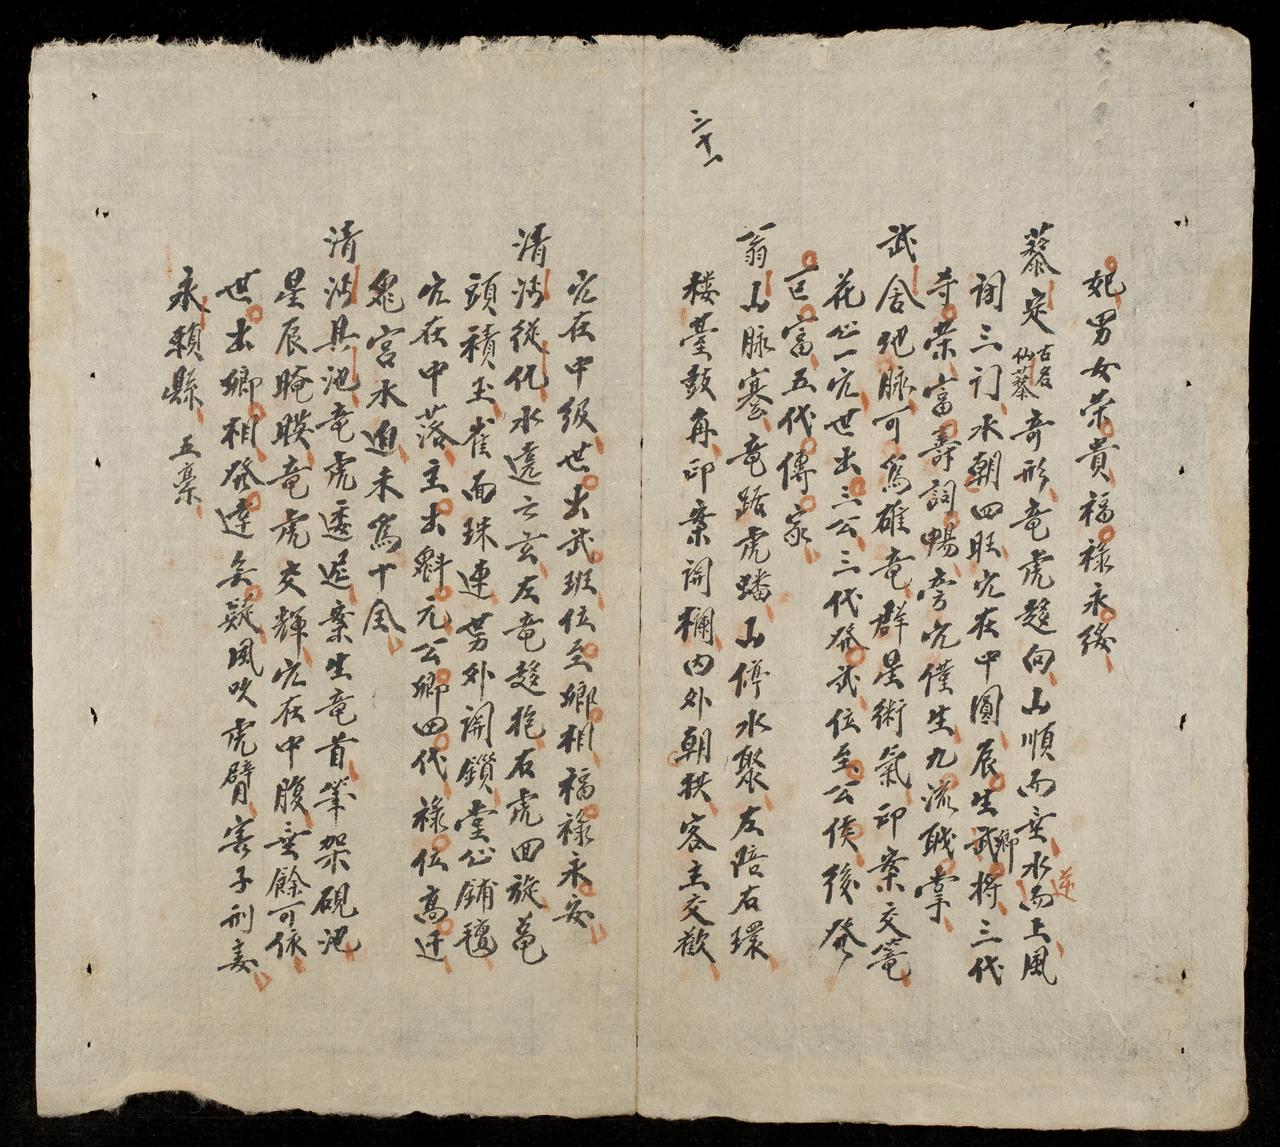 妃男女荣貴福禄永綏
藜定古名仙藜奇形竜虎趍向山順而垂水逆而上風
詞三门水朝四旺穴在中圓辰生武卿将三代
寺荣富壽詞暢旁穴僅生九流戝掌
武舍地脉可為雄竜群星術氣印案交篭
花心一穴世出三公三代發武位至公侯後發
巨富五代傳家
翁山脉蹇竜踞虎蟠山停水聚左陪右環
楼臺鼓角印案開欄内外朝拱客主交歡
三十一
穴在中级世出武班位至卿相福禄永安
清江従化水遶云玄左竜趍抱右虎回旋菴
頭積玉雀面珠連男外開鎖堂心鋪氊
穴在中落主出魁元公卿四代禄位高迁
鬼宫水迫未為十全
清江具池竜虎透迤案生竜首筆架硯池
星辰晻䁾竜虎交輝穴在中腹垂餘可依
世出卿相發達無疑風吹虎臂害子刑妻
永賴縣 五藁